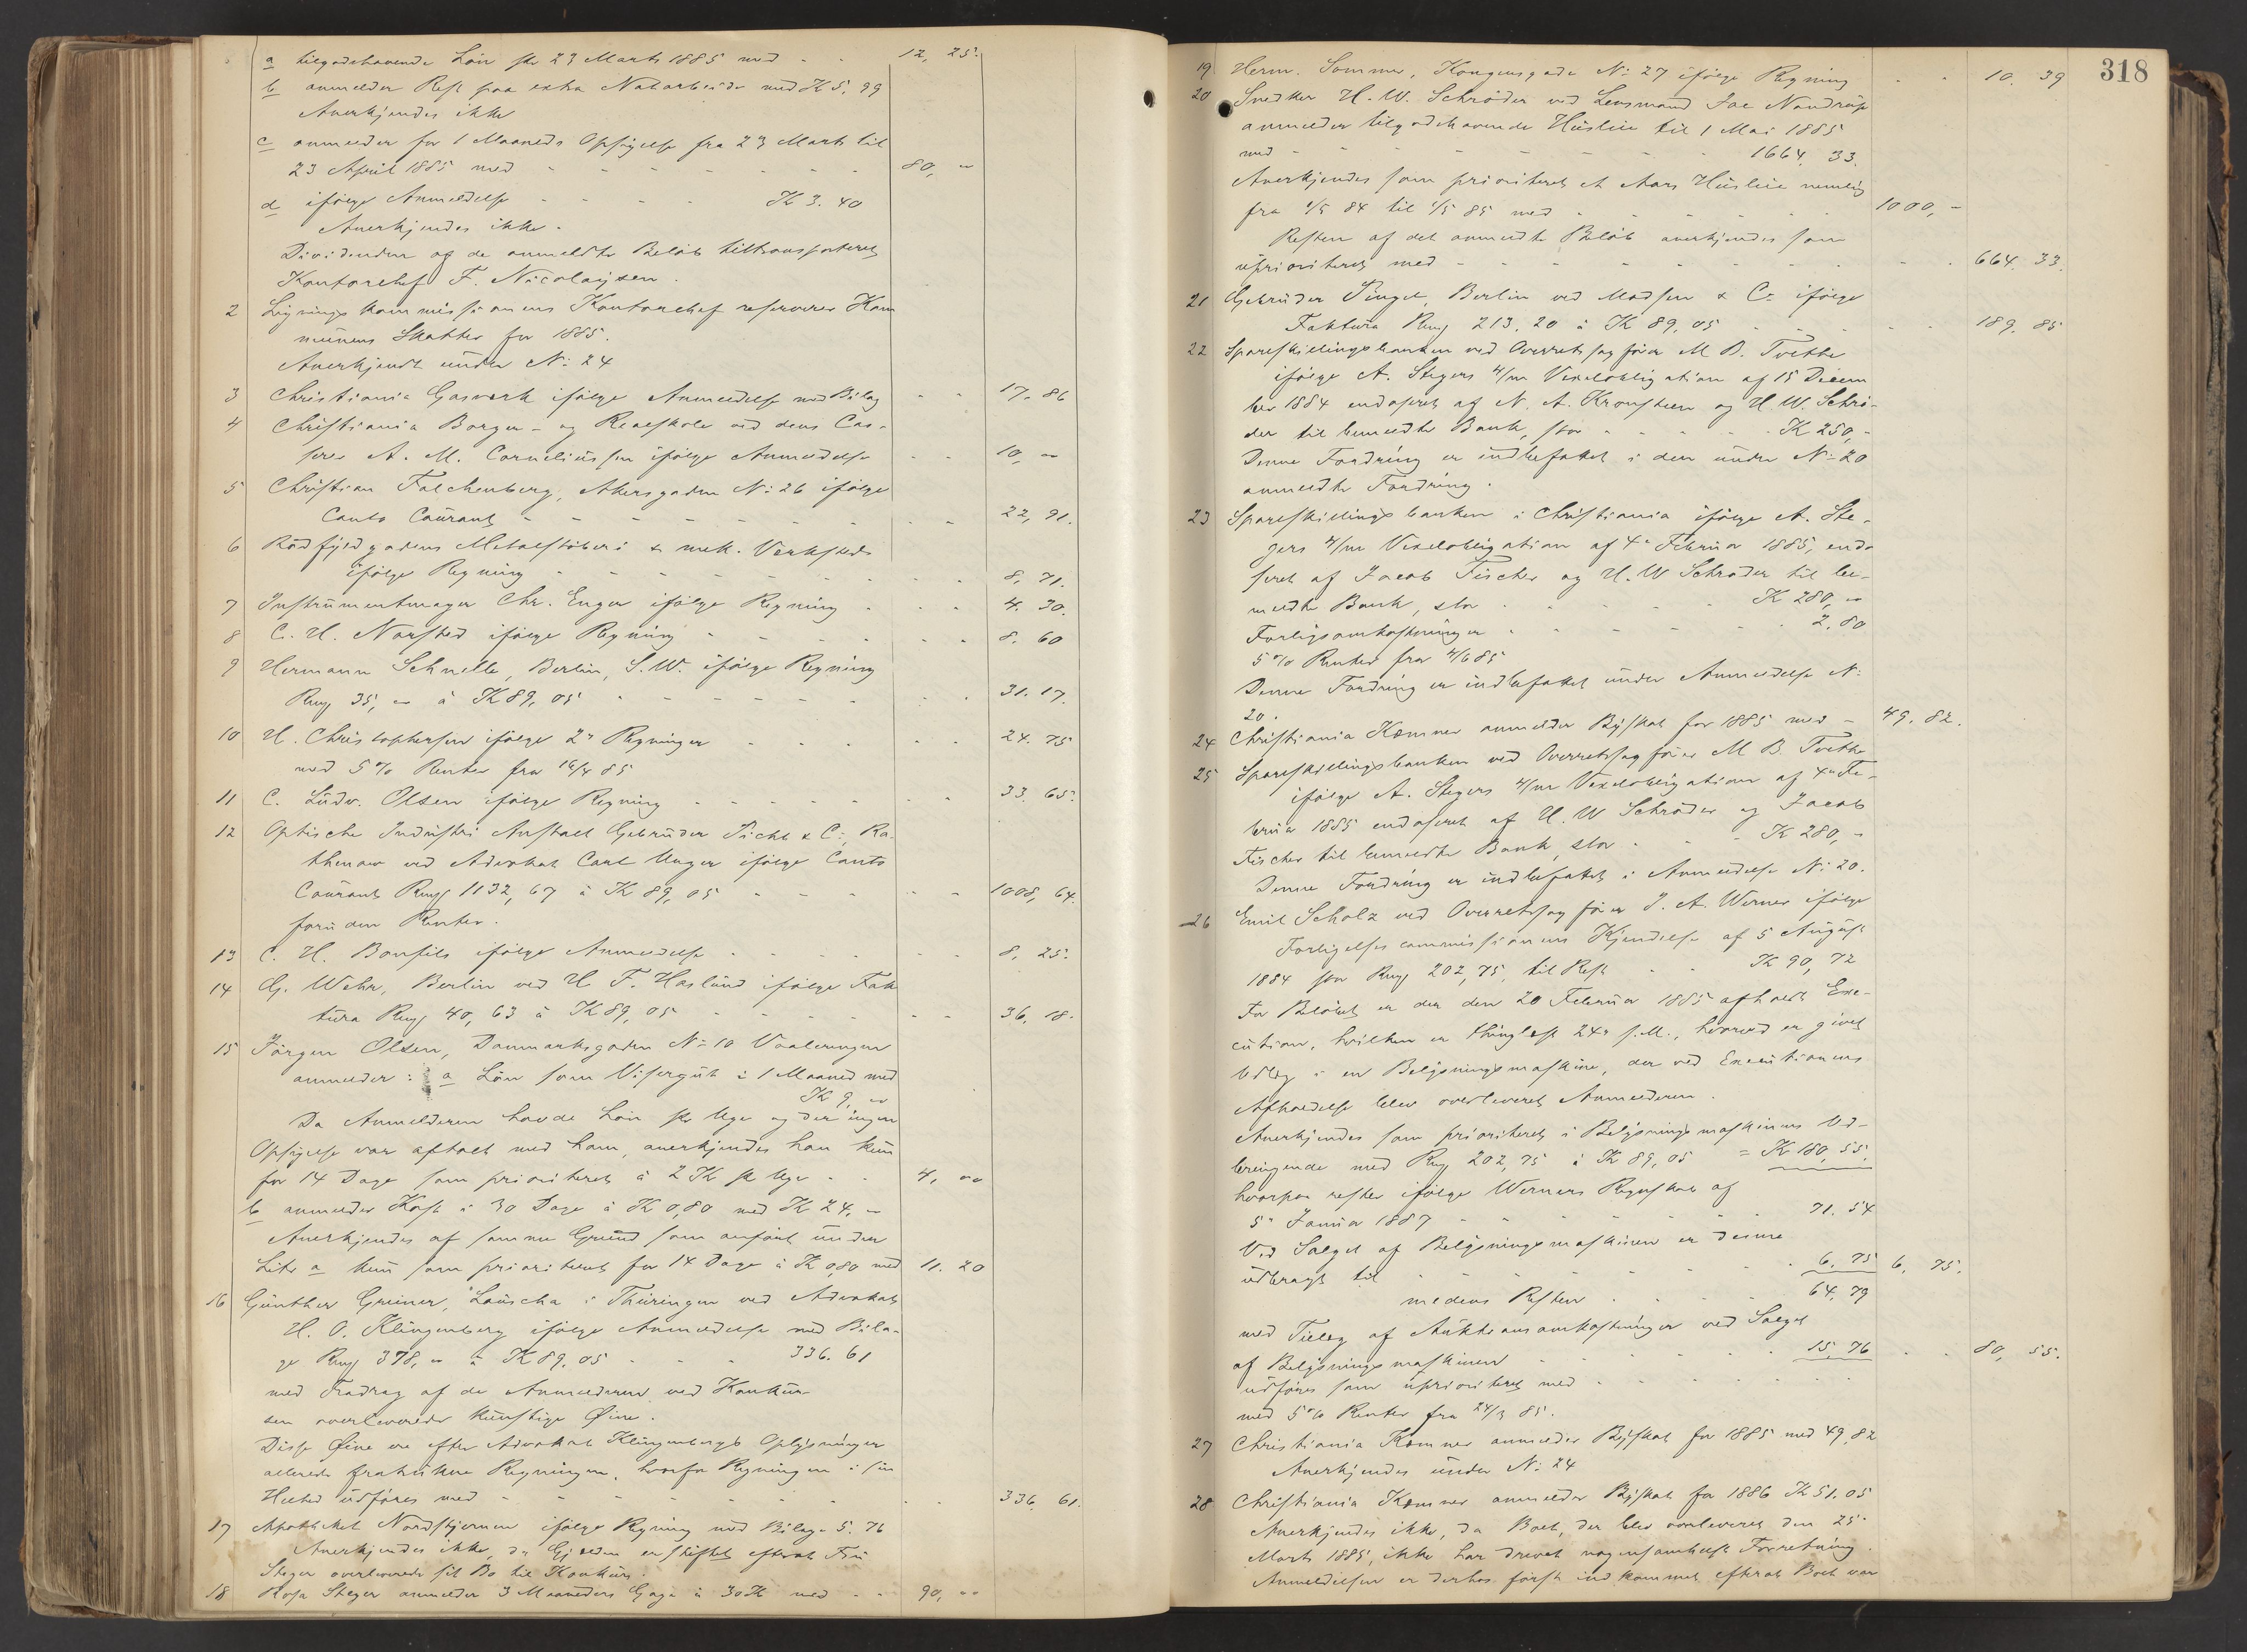 a tilgodehavende Løn pr 23 Marts 1885 med - - 12, 25.
b anmelder Rest paa extra Natarbeide med K 5. 99
Anerkjendes ikke
c anmelder for 1 Maaneds Opsigelse fra 23 Marts til
23 April 1885 med - - - - - - - 80, "
d ifølge Anmeldelse - - - - K 3. 40
Anerkjendes ikke.
Dividenden af de anmeldte Beløb tiltransporteret
Kontorchef F. Nicolaysen.
2 Ligningskommissionens Kontorchef reserverer Kom
munens Skatter for 1885.
Anerkjendt under No 24
3 Christiania Gasverk ifølge Anmeldelse med Bilag - - 17. 86
4 Christiania Borger- og Realskole ved dens Cas-
serer A. M. Corneliussen ifølge Anmeldelse - - 10, "
5 Christian Falchenberg, Akersgaden No 26 ifølge
Conto Courant - - - - - - - - 22, 91.
6 Rødfyldgadens Metalstøberi & mek. Værksted
ifølge Regning - - - - - - - - 8, 71.
7 Instrumentmager Chr. Enger ifølge Regning - - - 4. 30.
8 C. H. Norsted ifølge Regning - - - - - - 8. 60
9 Hermann Schnelle, Berlin, S.W. ifølge Regning
Rmf 35, " à K 89, 05 - - - - - - - 31. 17.
10 H. Christophersen ifølge 2de Regninger - - - - - 24. 75
med 5 % Renter fra 16/4 85
11 C. Ludv. Olsen ifølge Regning - - - - - - 33. 65.
12 Optische Industri Anstalt Gebrüder Picht & Co, Ra-
thenow ved Advokat Carl Unger ifølge Conto
Courant Rmf 1132, 67 à K 89, 05 - - - - - 1008, 64.
foruden Renter.
13 C. H. Bonfils ifølge Anmeldelse - - - - - 8, 25.
14 G. Wehr, Berlin ved H. F. Haslund ifølge Fak
tura Rmf 40, 63 à K 89, 05 - - - - - - 36. 18.
15 Jørgen Olsen, Danmarksgaden No 10 Vaalerengen
anmelder: a Løn som Visergut i 1 Maaned med
K 9, "
Da Anmelderen havde Løn pr Uge og der ingen
Opsigelse var aftalt med ham, anerkjendes han kun
for 14 Dage som prioriteret à 2 K pr Uge - - 4, "
b anmelder Kost i 30 Dage à K 0,80 med K 24. "
Anerkjendes af samme Grund som anført under
Litr a kun som prioriteret for 14 Dage à K 0,80 med 11. 20
16 Günther Greiner, Lauscha i Thüringen ved Advokat
H. O. Klingenberg ifølge Anmeldelse med Bila-
ge Rmf 378, " à K 89. 05 - - - 336. 61
med Fradrag af de Anmelderen ved Konkur-
sen overleverede kunstige Øine.
Disse Øine ere efter Advokat Klingenbergs Oplysninger
allerede fratrukne Regningen, hvorfor Regningen i sin
Helhed udføres med - - - - - - - 336. 61.
17 Apotheket Nordstjernen ifølge Regning med Bilag - 5. 76
Anerkjendes ikke, da Gjælden er stiftet efterat Fru
Steger overleverede sit Bo til Konkurs.
18 Rosa Steger anmelder 3 Maaneders Gage à 30 K med - - 90, "
318
19 Herm. Sommer, Kongensgade No 27 ifølge Regning - - 10. 39
20 Snedker H. W. Schrøder ved Lensmand Joe Nandrup
anmelder tilgodehavende Husleie til 1 Mai 1885
med - - - - - - - - 1664. 33.
Anerkjendes som prioriteret et Aars Husleie nemlig
fra 1/5 84 til 1/5 85 med - - - - - - 1000, -
Resten af det anmeldte Beløb anerkjendes som
uprioriteret med - - - - - - - - - 664. 33.
21 Gebrüder Pinget, Berlin ved Madsen & Co ifølge
Faktura Rmf 213, 20 à K 89, 05 - - - - - 189. 85
22 Spareskillingsbanken ved Overretssagfører M B. Tvethe
ifølge A. Stegers 4/m Vexelobligation af 15 Decem
ber 1884 endosseret af N. A. Kronsteen og H. W. Schrø-
der til bemeldte Bank, stor - - - - K 250, -
Denne Fordring er indbefattet i den under No 20
anmeldte Fordring.
23 Spareskillingsbanken i Christiania ifølge A. Ste-
gers 4/m Vexelobligation af 4de Februar 1885, endo
seret af Jacob Fischer og H. W Schrøder til be-
meldte Bank, stor - - - - - K 280, "
Forligsomkostninger - - - - - - 2. 80
5 % Renter fra 4/6 85
Denne Fordring er indbefattet under Anmeldelse No
20.
24 Christiania Kemner anmelder Byskat for 1885 med - 49. 82.
25 Spareskillingsbanken ved Overretssagfører M B. Tvethe
ifølge A. Stegers 4/m Vexelobligation af 4de Fe-
bruar 1885 endosseret af H. W Schrøder og Jacob
Fischer til bemeldte Bank, stor - - - K 280, -
Denne Fordring er indbefattet i Anmeldelse No 20.
26 Emil Scholz ved Overretssagfører J. A. Werner ifølge
Forligelsescommissionens Kjendelse af 5 August
1884 stor Rmf 202, 75, til Rest - - K 90, 72
For Beløbet er der den 20 Februar 1885 afholdt Exe-
cution, hvilken er thinglæst 24de s. M., hvorved er givet
Udlæg i en Belysningsmaskine, der ved Executionens
Afholdelse blev overleveret Anmelderen.
Anerkjendes som prioriteret i Belysningsmaskinens Ud-
bringende med Rmf 202, 75 à K 89, 05 = K 180, 55,
hvorpaa rester ifølge Werners Regnskab af
5te Januar 1887 - - - - - - - 71. 54
Ved Salget af Belysningsmaskinen er denne
udbragt til - - - - - - - - 6. 75 6. 75.
medens Resten - - - - 64. 79
med Tillæg af Auktionsomkostninger ved Salget
af Belysningsmaskinen - - - - - - 15. 76 - - 80, 55.
udføres som uprioriteret med - - - - - -
med 5 % Renter fra 24/3 85.
27 Christiania Kemner anmelder Byskat for 1885 med 49. 82
Anerkjendes under No 24
28 Christiania Kemner anmelder Byskat for 1886 K 51. 05
Anerkjendes ikke, da Boet, der blev overleveret den 25.
Marts 1885, ikke har drevet nogensomhelst Forretning.
Anmeldelsen er derhos først indkommet efterat Boet var